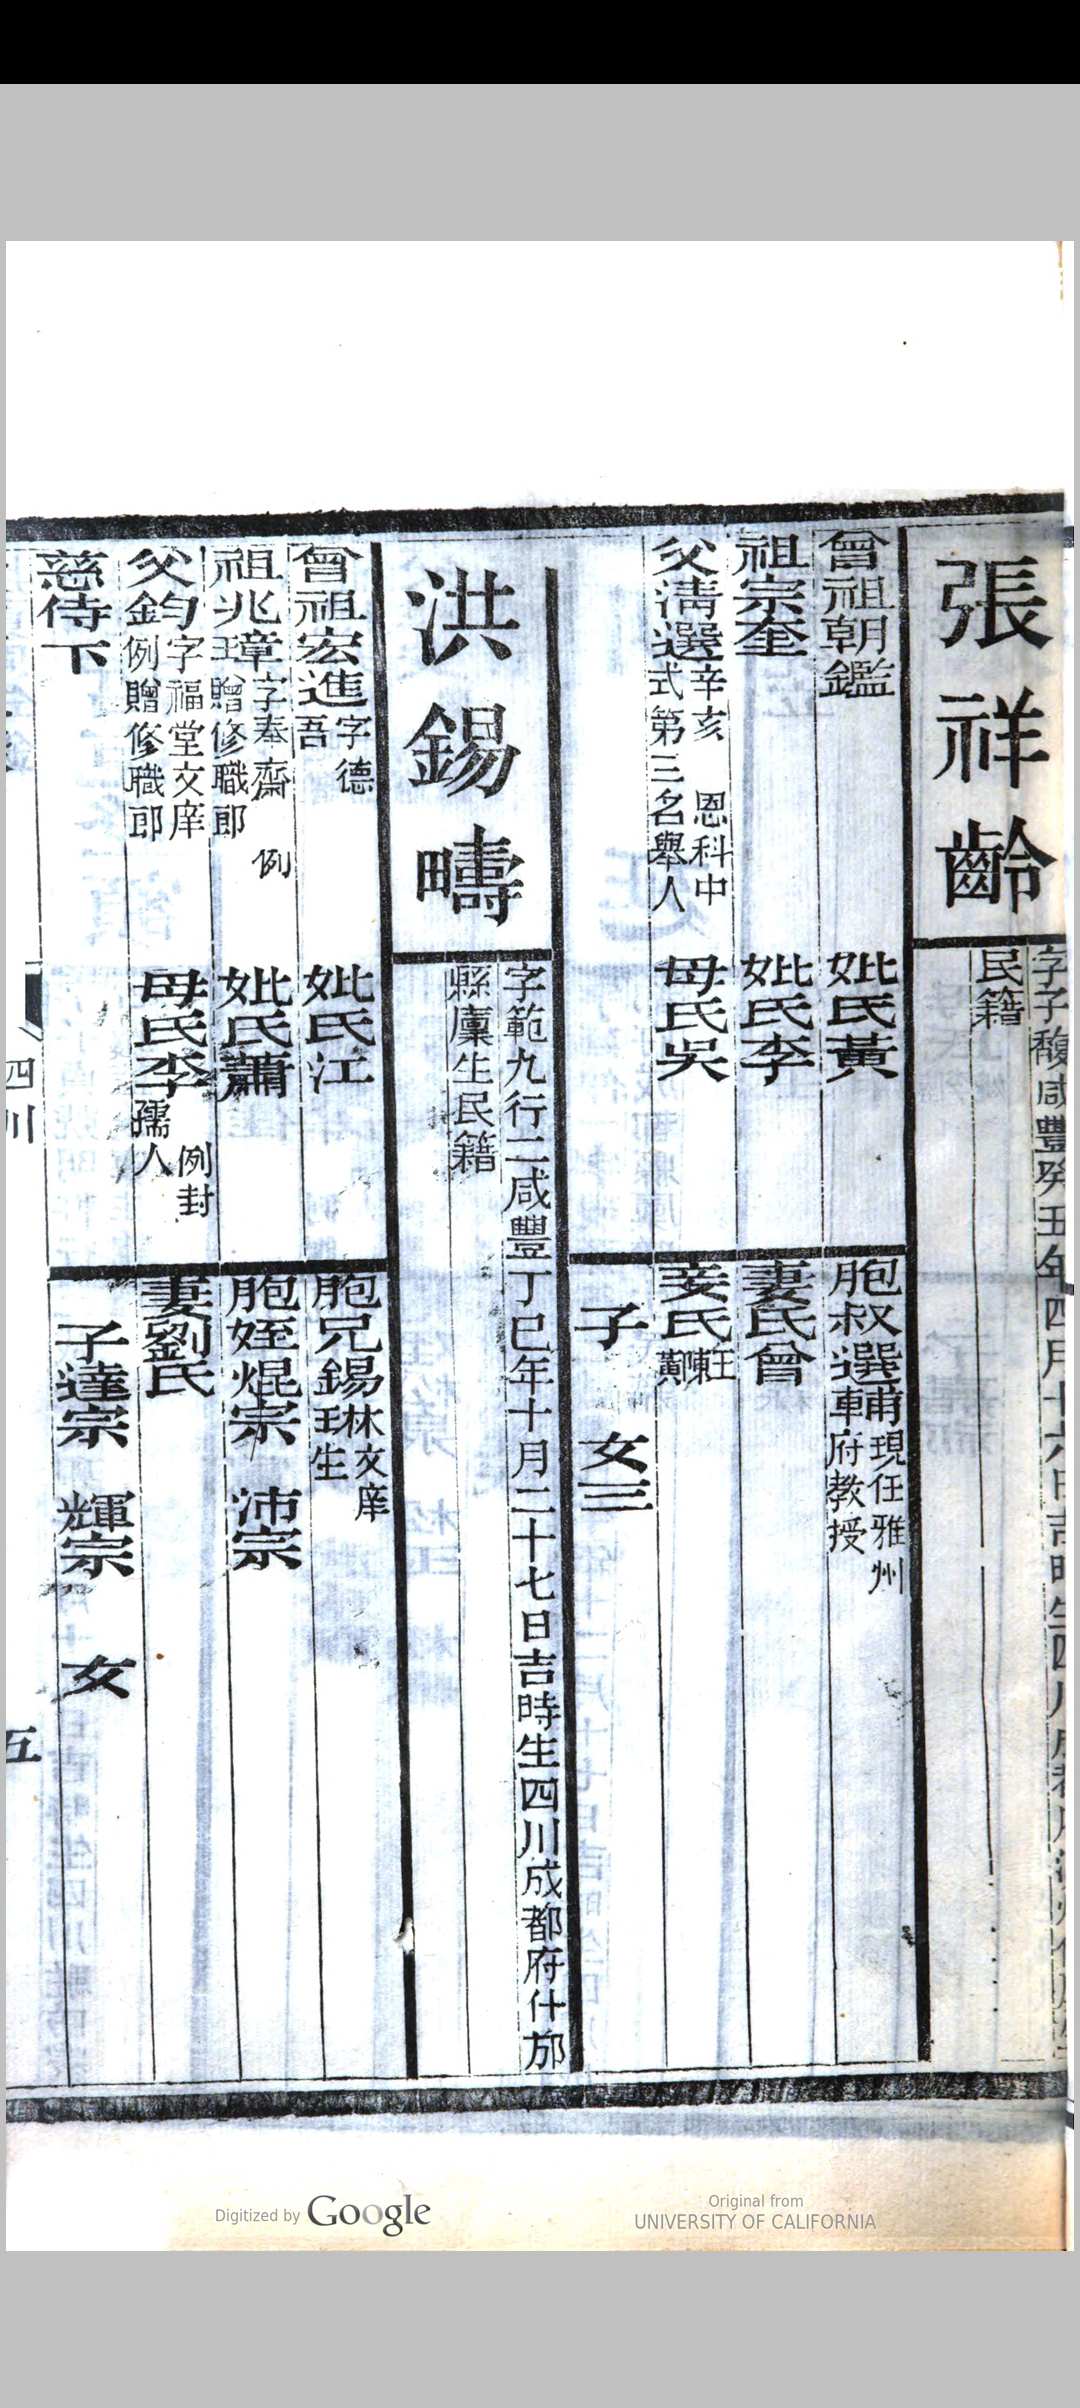 張祥齡
字子馥咸豐癸丑年四月十六日吉時生四川
民籍
曾祖朝鑑
祖宗奎
父清選辛亥 恩科中
式第三名舉人
妣氏黃
妣氏李
母氏吳
胞叔選甫現任雅州
車府教授
妻氏曾
妾氏王陳黃
子 女三
洪錫疇
字範九行二咸豐丁巳年十月二十七日吉時生四川成都府什邡
縣廩生民籍
曾祖宏進字德
吾
祖兆璋字奉齋 例
贈修職郎
父鈞字福堂文庠
例贈修職郎
慈侍下
妣氏江
妣氏蕭
母氏李例封
孺人
胞兄錫琳文庠
生
胞姪焜宗 沛宗
妻劉氏
子達宗 輝宗 女
四川
五
Digitized by Google
Original from
UNIVERSITY OF CALIFORNIA